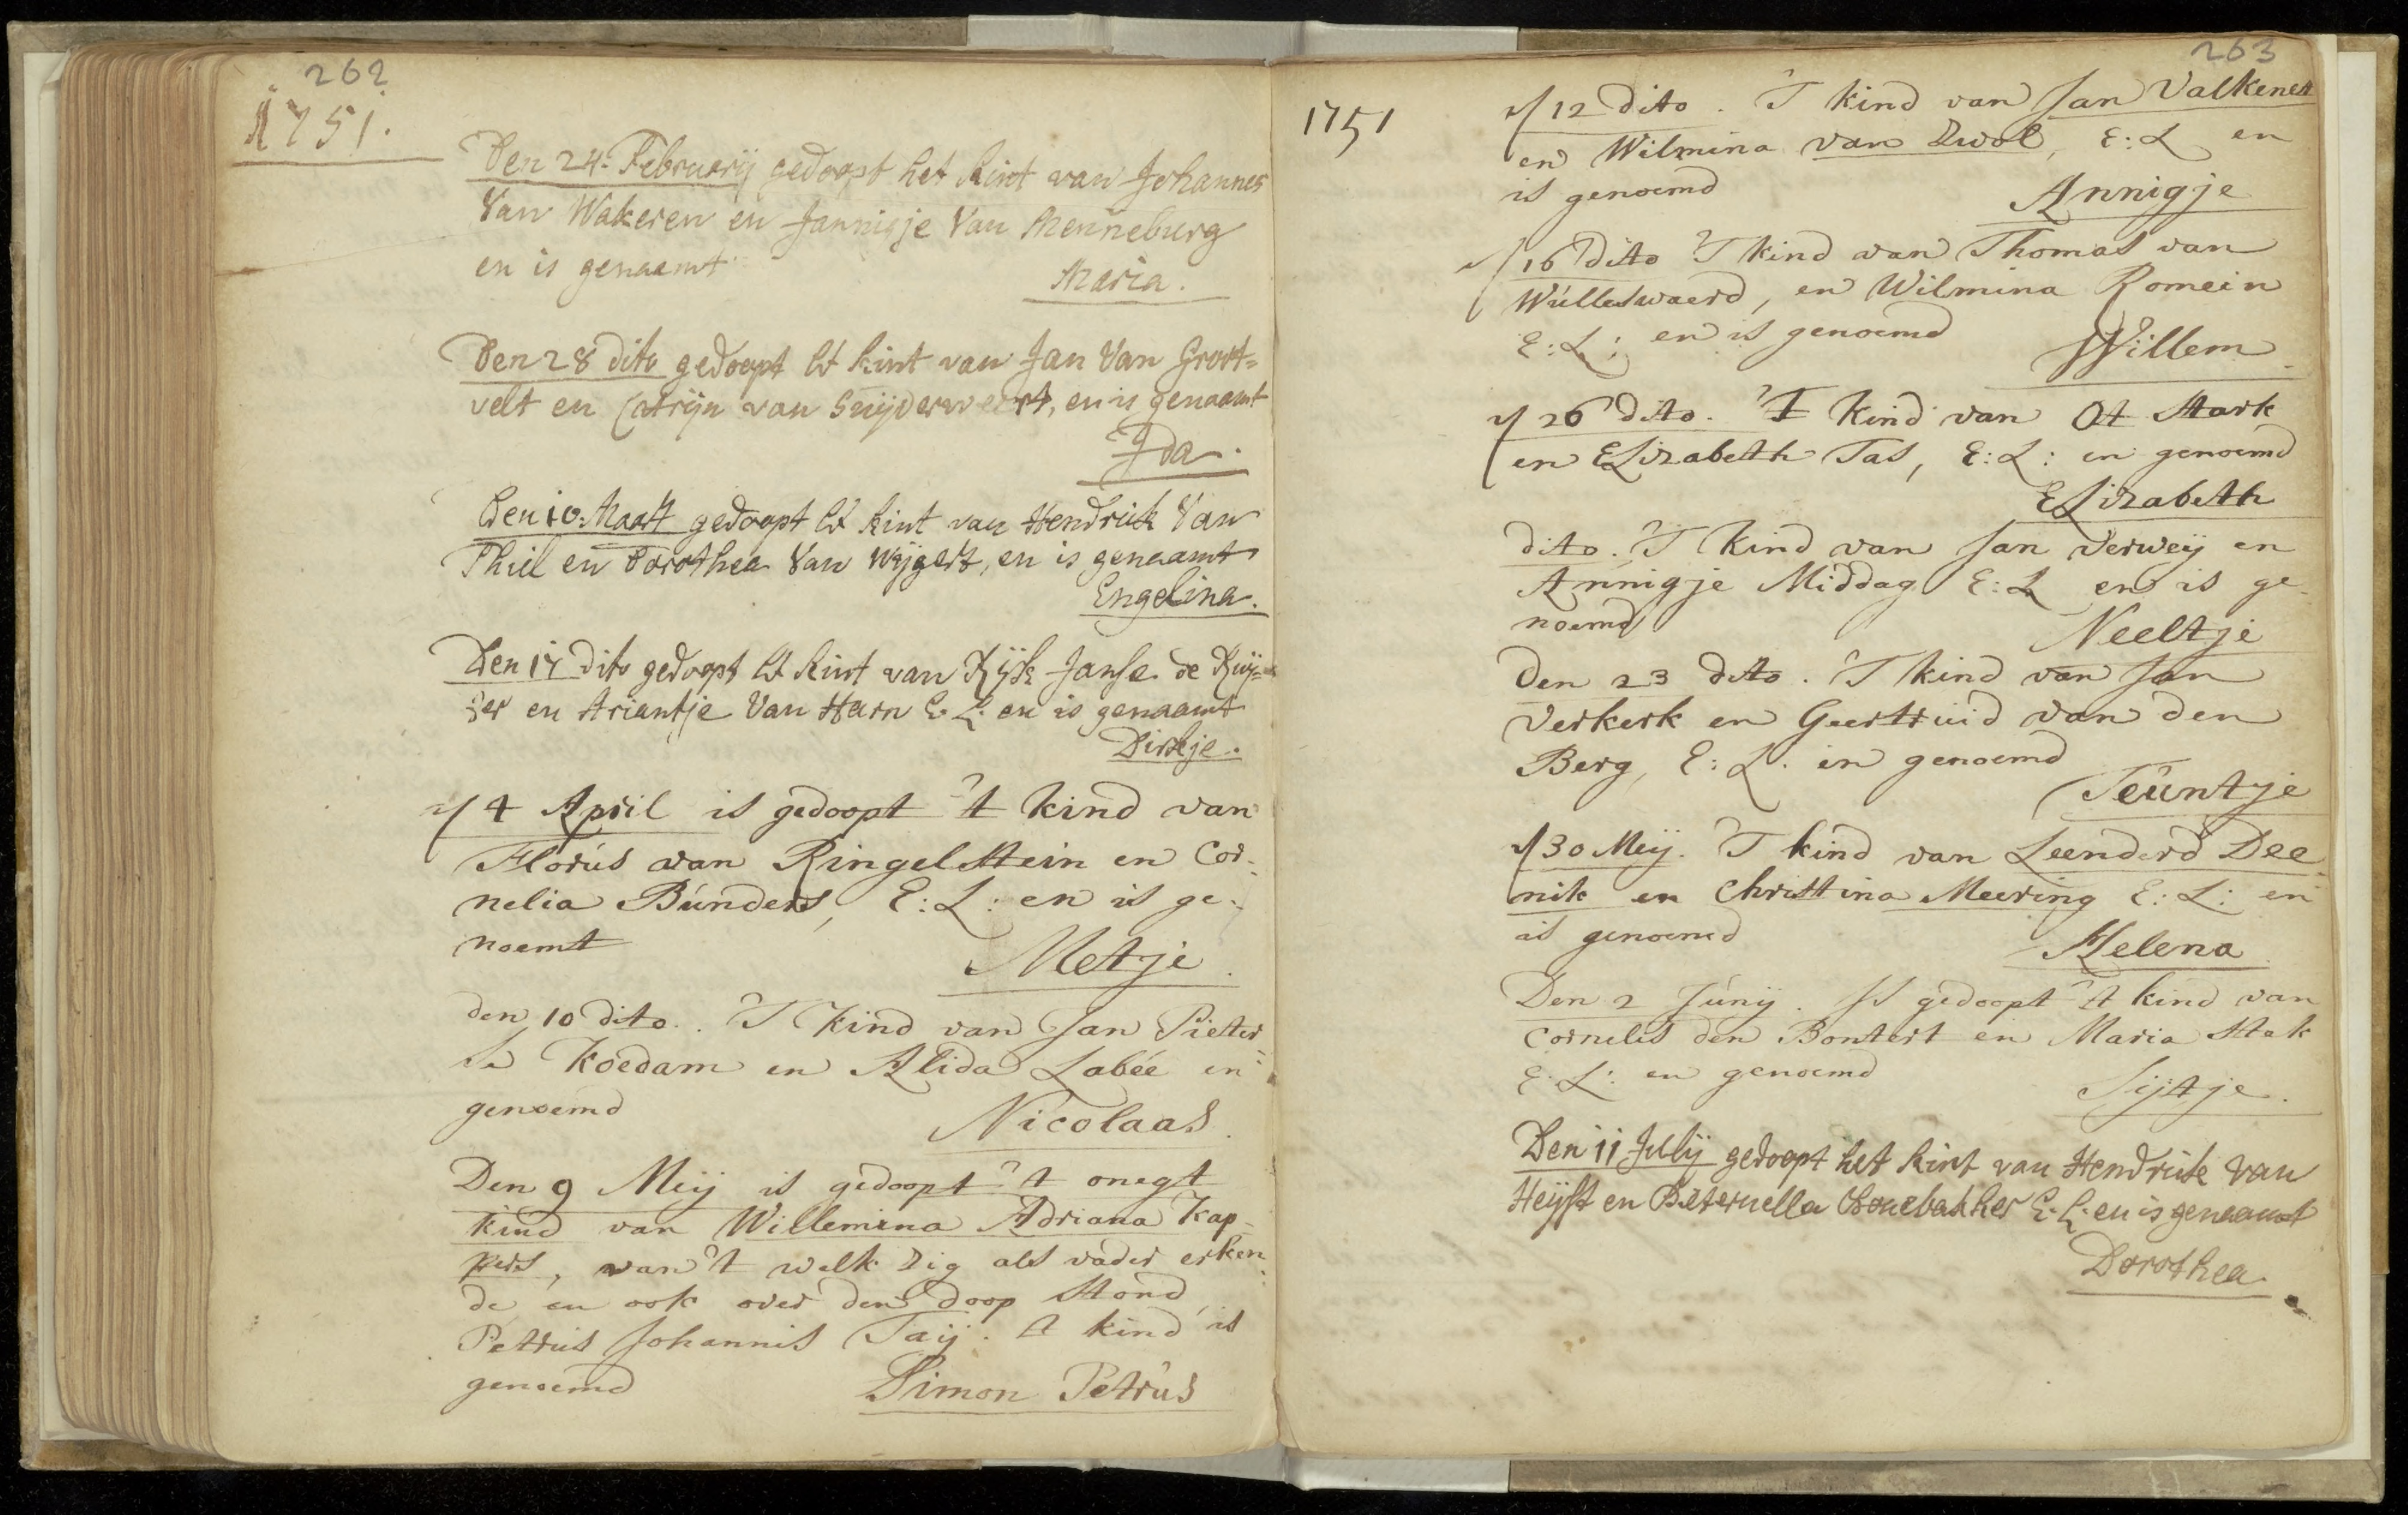 262
1751.
Den 24. Februarij gedoopt het kint van Johannes
Van Wakeren en Jannigje Van Menneburg
en is genaamt
Maria.
Den 28 dito gedoopt het kint van Jan Van Groot=
velt en Catrijn van Snijderweert, en is genaamt
Ida.
Den 10. Maart gedoopt het kint van Hendrick Van
Thiel en Dorothea Van Wijgert, en is genaamt
Engelina.
Den 17 dito gedoopt het kint van Rijk Janse de Ruij=
ter en Ariantje Van Harn E. L. en is genaamt
Dirkje.
4 April is gedoopt 't kind van
Florús van Ringelstein en Cor-
nelia Búnders, E: L: en is ge-
noemt
Metje
den 10 dito. 'T kind van Jan Pieter
se Koedam en Alida Labée en
genoemd
Nicolaas.
Den 9 Meij is gedoopt 't onegt
kind van Willemina Adriana Kap-
pers, van 't welk zig als vader erken-
de en ook over den doop stond
Petrus Johannis Taij. 't kind is
genoemd
Simon Petrús
263
1751
12 dito. 'T kind van Jan Valkenet
en Wilmina van Zwol, E: L en
is genoemd
Annigje
16 dito 'T kind van Thomas van
Wúlleswaerd, en Wilmina Romein
E: L: en is genoemd
Willem.
26 dito. 'T kind van Ot Stark
en Elizabeth Tas, E: L: en genoemd
Elizabeth
dito. 'T kind van Jan Verweij en
Annigje Middag E: L en is ge-
noemd
Neeltje
Den 23 dito. 'T kind van Jan
Verkerk en Geertruid van den
Berg, E: L. en genoemd
Teúntje
30 Meij. 'T kind van Leenderd Dee-
nik en Christina Meering E: L: en
is genoemd
Helena
Den 2 Júnij. Is gedoopt 't kind van
Cornelis den Bontert en Maria Stek
E: L: en genoemd
Sijtje.
Den 11 Julij gedoopt het kint van Hendrick Van
Heijst en Pieternella E. L. en is genaamt
Dorothea.